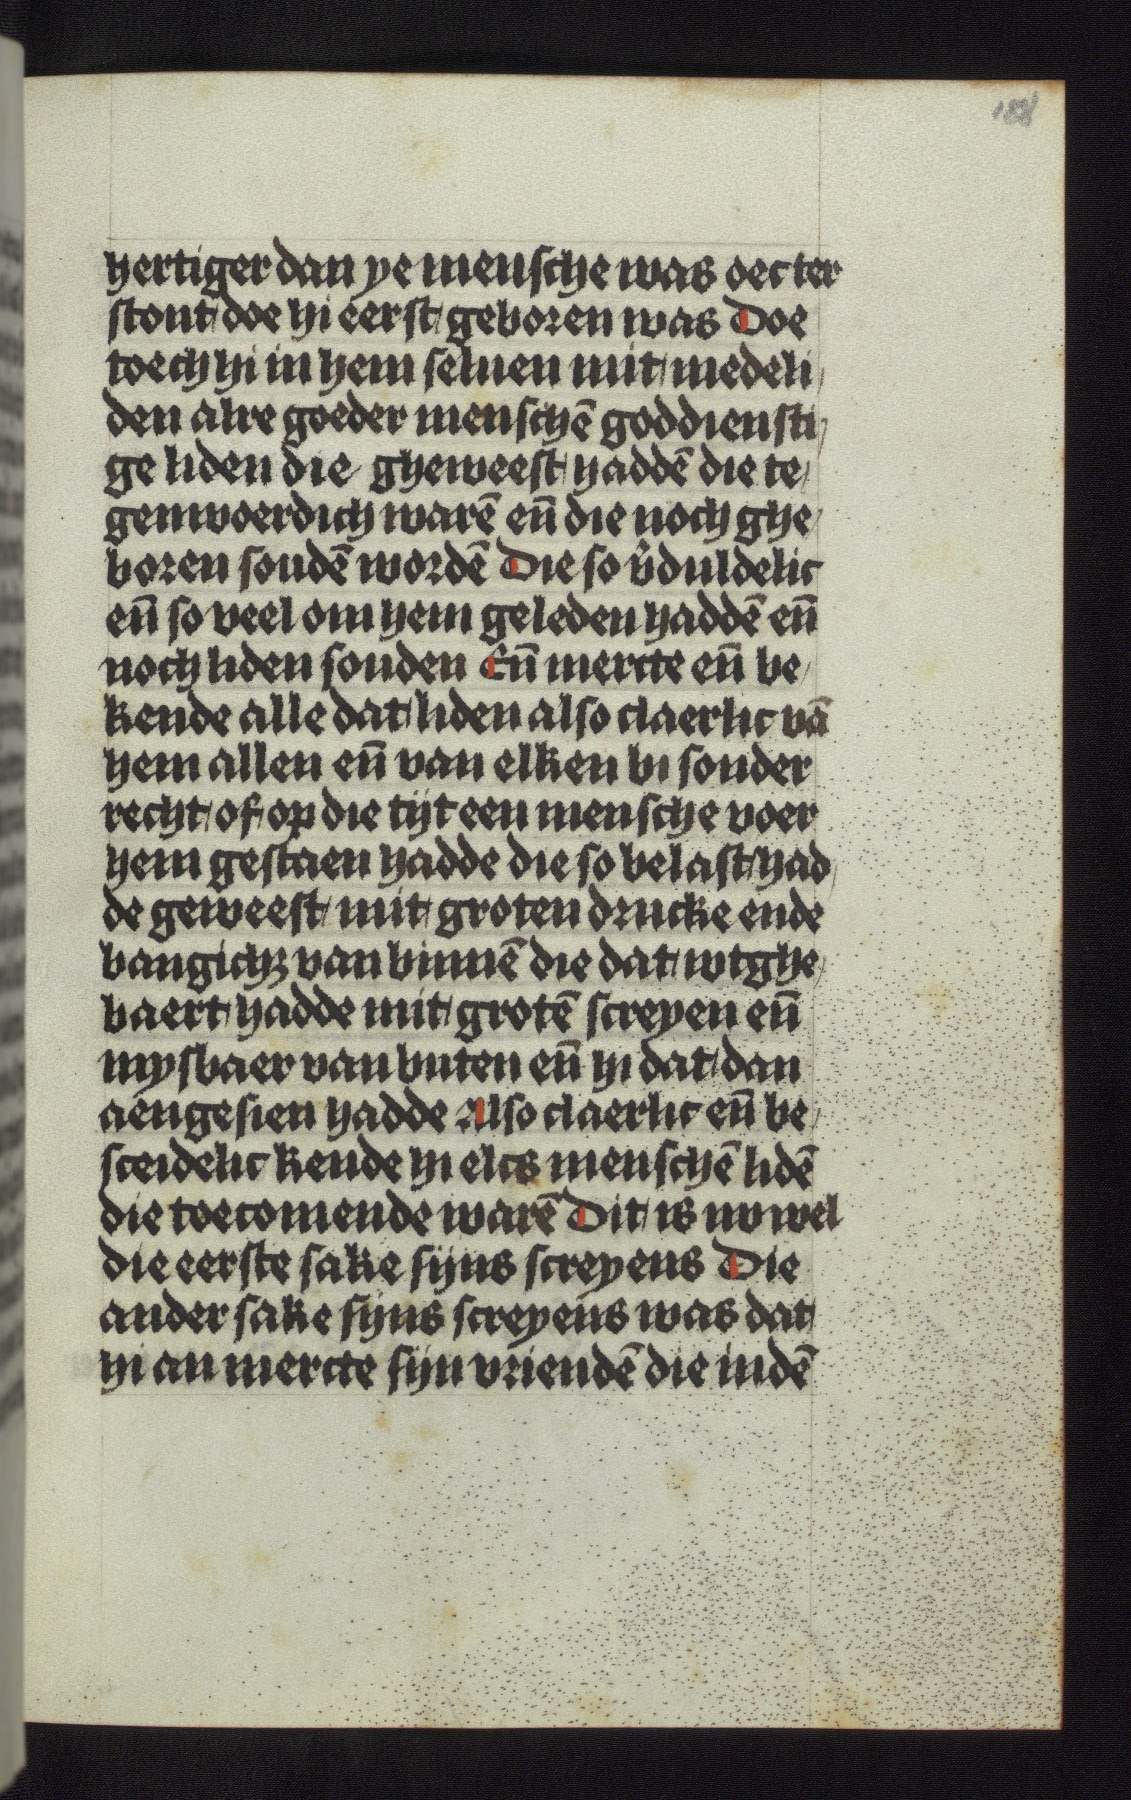 188
hertiger dan ye mensche was oec ter
stont doe hi eerst geboren was Doe
toech hi in hem seluen mit medeli
den alre goeder menschē goddiensti
ge liden die gheweest haddē die te
genwoerdich warē en̄ die noch ghe
boren soudē wordē Die so v̄duldelic
en̄ so veel om hem geleden haddē en̄
noch liden souden En̄ mercte en̄ be
kende alle dat liden also claerlic vā
hem allen en̄ van elken bi sonder
recht of op die tijt een mensche voer
hem gestaen hadde die so belast had
de geweest mit groten drucke ende
bangichz van binnē die dat wtghe
baert hadde mit grotē screyen en̄
mysbaer van buten en̄ hi dat dan
aengesien hadde Also claerlic en̄ be
sceidelic kende hi elcs menschē lidē
die toecomende warē Dit is nv wel
die eerste sake sijns screyens Die
ander sake sijns screyens was dat
hi an mercte sijn vriendē die indē